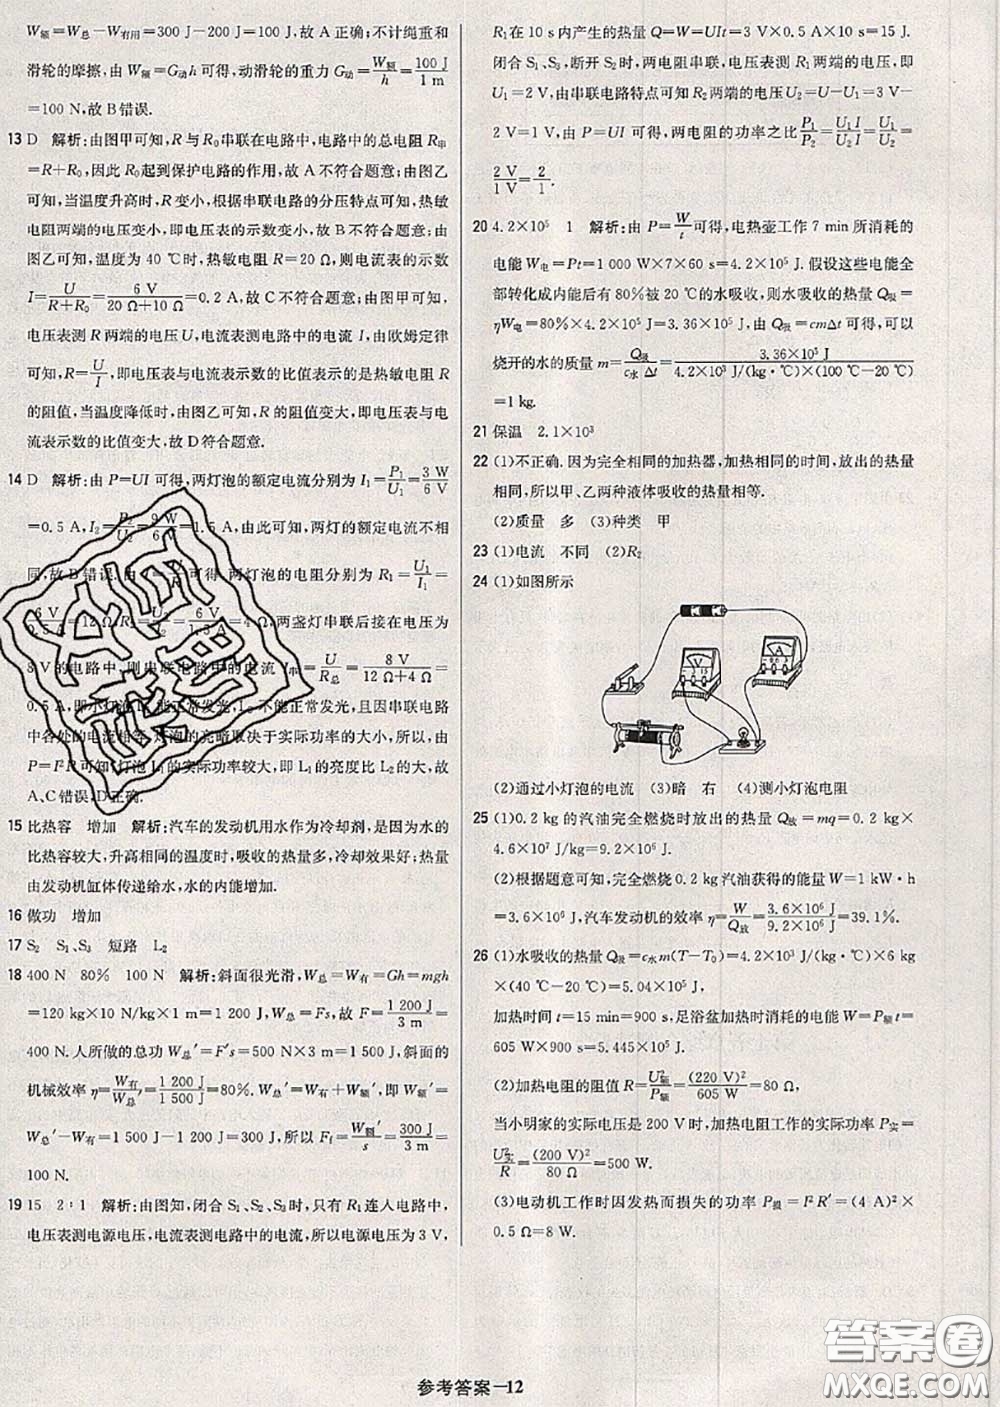 W额=W总-W有用=300 J-200 J=100 J,故 A 正确;不计绳重和
滑轮的摩擦,由 W额=G动h 可得,动滑轮的重力 G动=W额/h=100 J/1 m
=100 N,故 B 错误.
13 D 解析:由图甲可知,R 与 R0 串联在电路中,电路中的总电阻 R串
=R+R0,因此 R0 起到保护电路的作用,故 A 不符合题意;由图乙
可知,当温度升高时,R 变小,根据串联电路的分压特点可知,热敏
电阻两端的电压变小,即电压表的示数变小,故 B 不符合题意;由
图乙可知,当温度为 40 ℃时,热敏电阻 R=20 Ω,则电流表的示数
I=U/(R+R0)=6 V/(20 Ω+10 Ω)=0.2 A,故 C 不符合题意;由图甲可知,
电压表测 R 两端的电压 U,电流表测电路中的电流 I,由欧姆定律
可知,R=U/I,即电压表与电流表示数的比值表示的是热敏电阻 R
的阻值,当温度降低时,由图乙可知,R 的阻值变大,即电压表与电
流表示数的比值变大,故 D 符合题意.
14 D 解析:由 P=UI 可得,两灯泡的额定电流分别为 I1=P1/U1=3 W/6 V
=0.5 A,I2=P2/U2=9 W/6 V=1.5 A,由此可知,两灯的额定电流不相
同,故 B 错误.由 可得,两灯泡的电阻分别为 R1=U1/I1
=6 V/0.5 A=12 Ω,R2=U2/I2=6 V/1.5 A=4 Ω,两盏灯串联后接在电压为
8 V 的电路中,则串联电路中的电流 =U/R总=8 V/(12 Ω+4 Ω)=
0.5 A,即小灯泡 L1 能正常发光,L2 不能正常发光,且因串联电路
中各处的电流相等,灯泡的亮暗取决于实际功率的大小,所以,由
P=I²R 可知,灯泡 L1 的实际功率较大,即 L1 的亮度比 L2 的大,故
A、C 错误,D 正确.
15 比热容 增加 解析:汽车的发动机用水作为冷却剂,是因为水的
比热容较大,升高相同的温度时,吸收的热量多,冷却效果好;热量
由发动机缸体传递给水,水的内能增加.
16 做功 增加
17 S2 S1、S3 短路 L2
18 400 N 80% 100 N 解析:斜面很光滑,W总=W有=Gh=mgh
=120 kg×10 N/kg×1 m=1 200 J,由 W总=Fs,故 F=1 200 J/3 m=
400 N.人所做的总功 W总′=F′s=500 N×3 m=1 500 J,斜面的
机械效率 η=W有/W总′=1 200 J/1 500 J=80%.W总′=W有+W额′,即 W额′=
W总′-W有=1 500 J-1 200 J=300 J,所以 Ff=W额′/s=300 J/3 m=
100 N.
19 15 2∶1 解析:由图知,闭合 S1、S2、S3 时,只有 R1 连入电路中,
电压表测电源电压,电流表测电路中的电流,所以电源电压为 3 V,
R1 在 10 s 内产生的热量 Q=W=UIt=3 V×0.5 A×10 s=15 J.
闭合 S1、S3,断开 S2 时,两电阻串联,电压表测 R1 两端的电压,即
U1=2 V,由串联电路特点可知 R2 两端的电压 U2=U-U1=3 V-
2 V=1 V;由 P=UI 可得,两电阻的功率之比 P1/P2=U1I/U2I=U1/U2=
2 V/1 V=2/1.
20 4.2×10⁵ 1 解析:由 P=W/t 可得,电热壶工作 7 min 所消耗的
电能 W电=Pt=1 000 W×7×60 s=4.2×10⁵ J.假设这些电能
全部转化成内能后有 80%被 20 ℃的水吸收,则水吸收的热量 Q吸=
ηW电=80%×4.2×10⁵ J=3.36×10⁵ J,由 Q吸=cmΔt 可得,可以
烧开的水的质量 m=Q吸/(c水Δt)=3.36×10⁵ J/(4.2×10³ J/(kg·℃)×(100 ℃-20 ℃))
=1 kg.
21 保温 2.1×10³
22 (1)不正确.因为完全相同的加热器,加热相同的时间,放出的热量
相同,所以甲、乙两种液体吸收的热量相等.
(2)质量 多 (3)种类 甲
23 (1)电流 不同 (2)R2
24 (1)如图所示
V
A
(2)通过小灯泡的电流 (3)暗 右 (4)测小灯泡电阻
25 (1)0.2 kg 的汽油完全燃烧时放出的热量 Q放=mq=0.2 kg×
4.6×10⁷ J/kg=9.2×10⁶ J.
(2)根据题意可知,完全燃烧 0.2 kg 汽油获得的能量 W=1 kW·h
=3.6×10⁶ J,汽车发动机的效率 η=W/Q放=3.6×10⁶ J/9.2×10⁶ J=39.1%.
26 (1)水吸收的热量 Q吸=c水m(T-T0)=4.2×10³ J/(kg·℃)×6 kg
×(40 ℃-20 ℃)=5.04×10⁵ J,
加热时间 t=15 min=900 s,足浴盆加热时消耗的电能 W=P额t=
605 W×900 s=5.445×10⁵ J.
(2)加热电阻的阻值 R=U额²/P额=(220 V)²/605 W=80 Ω,
当小明家的实际电压是 200 V 时,加热电阻工作的实际功率 P实=
U实²/R=(200 V)²/80 Ω=500 W.
(3)电动机工作时因发热而损失的功率 P损=I²R′=(4 A)²×
0.5 Ω=8 W.
参考答案—12
答案圈
MXQE.COM